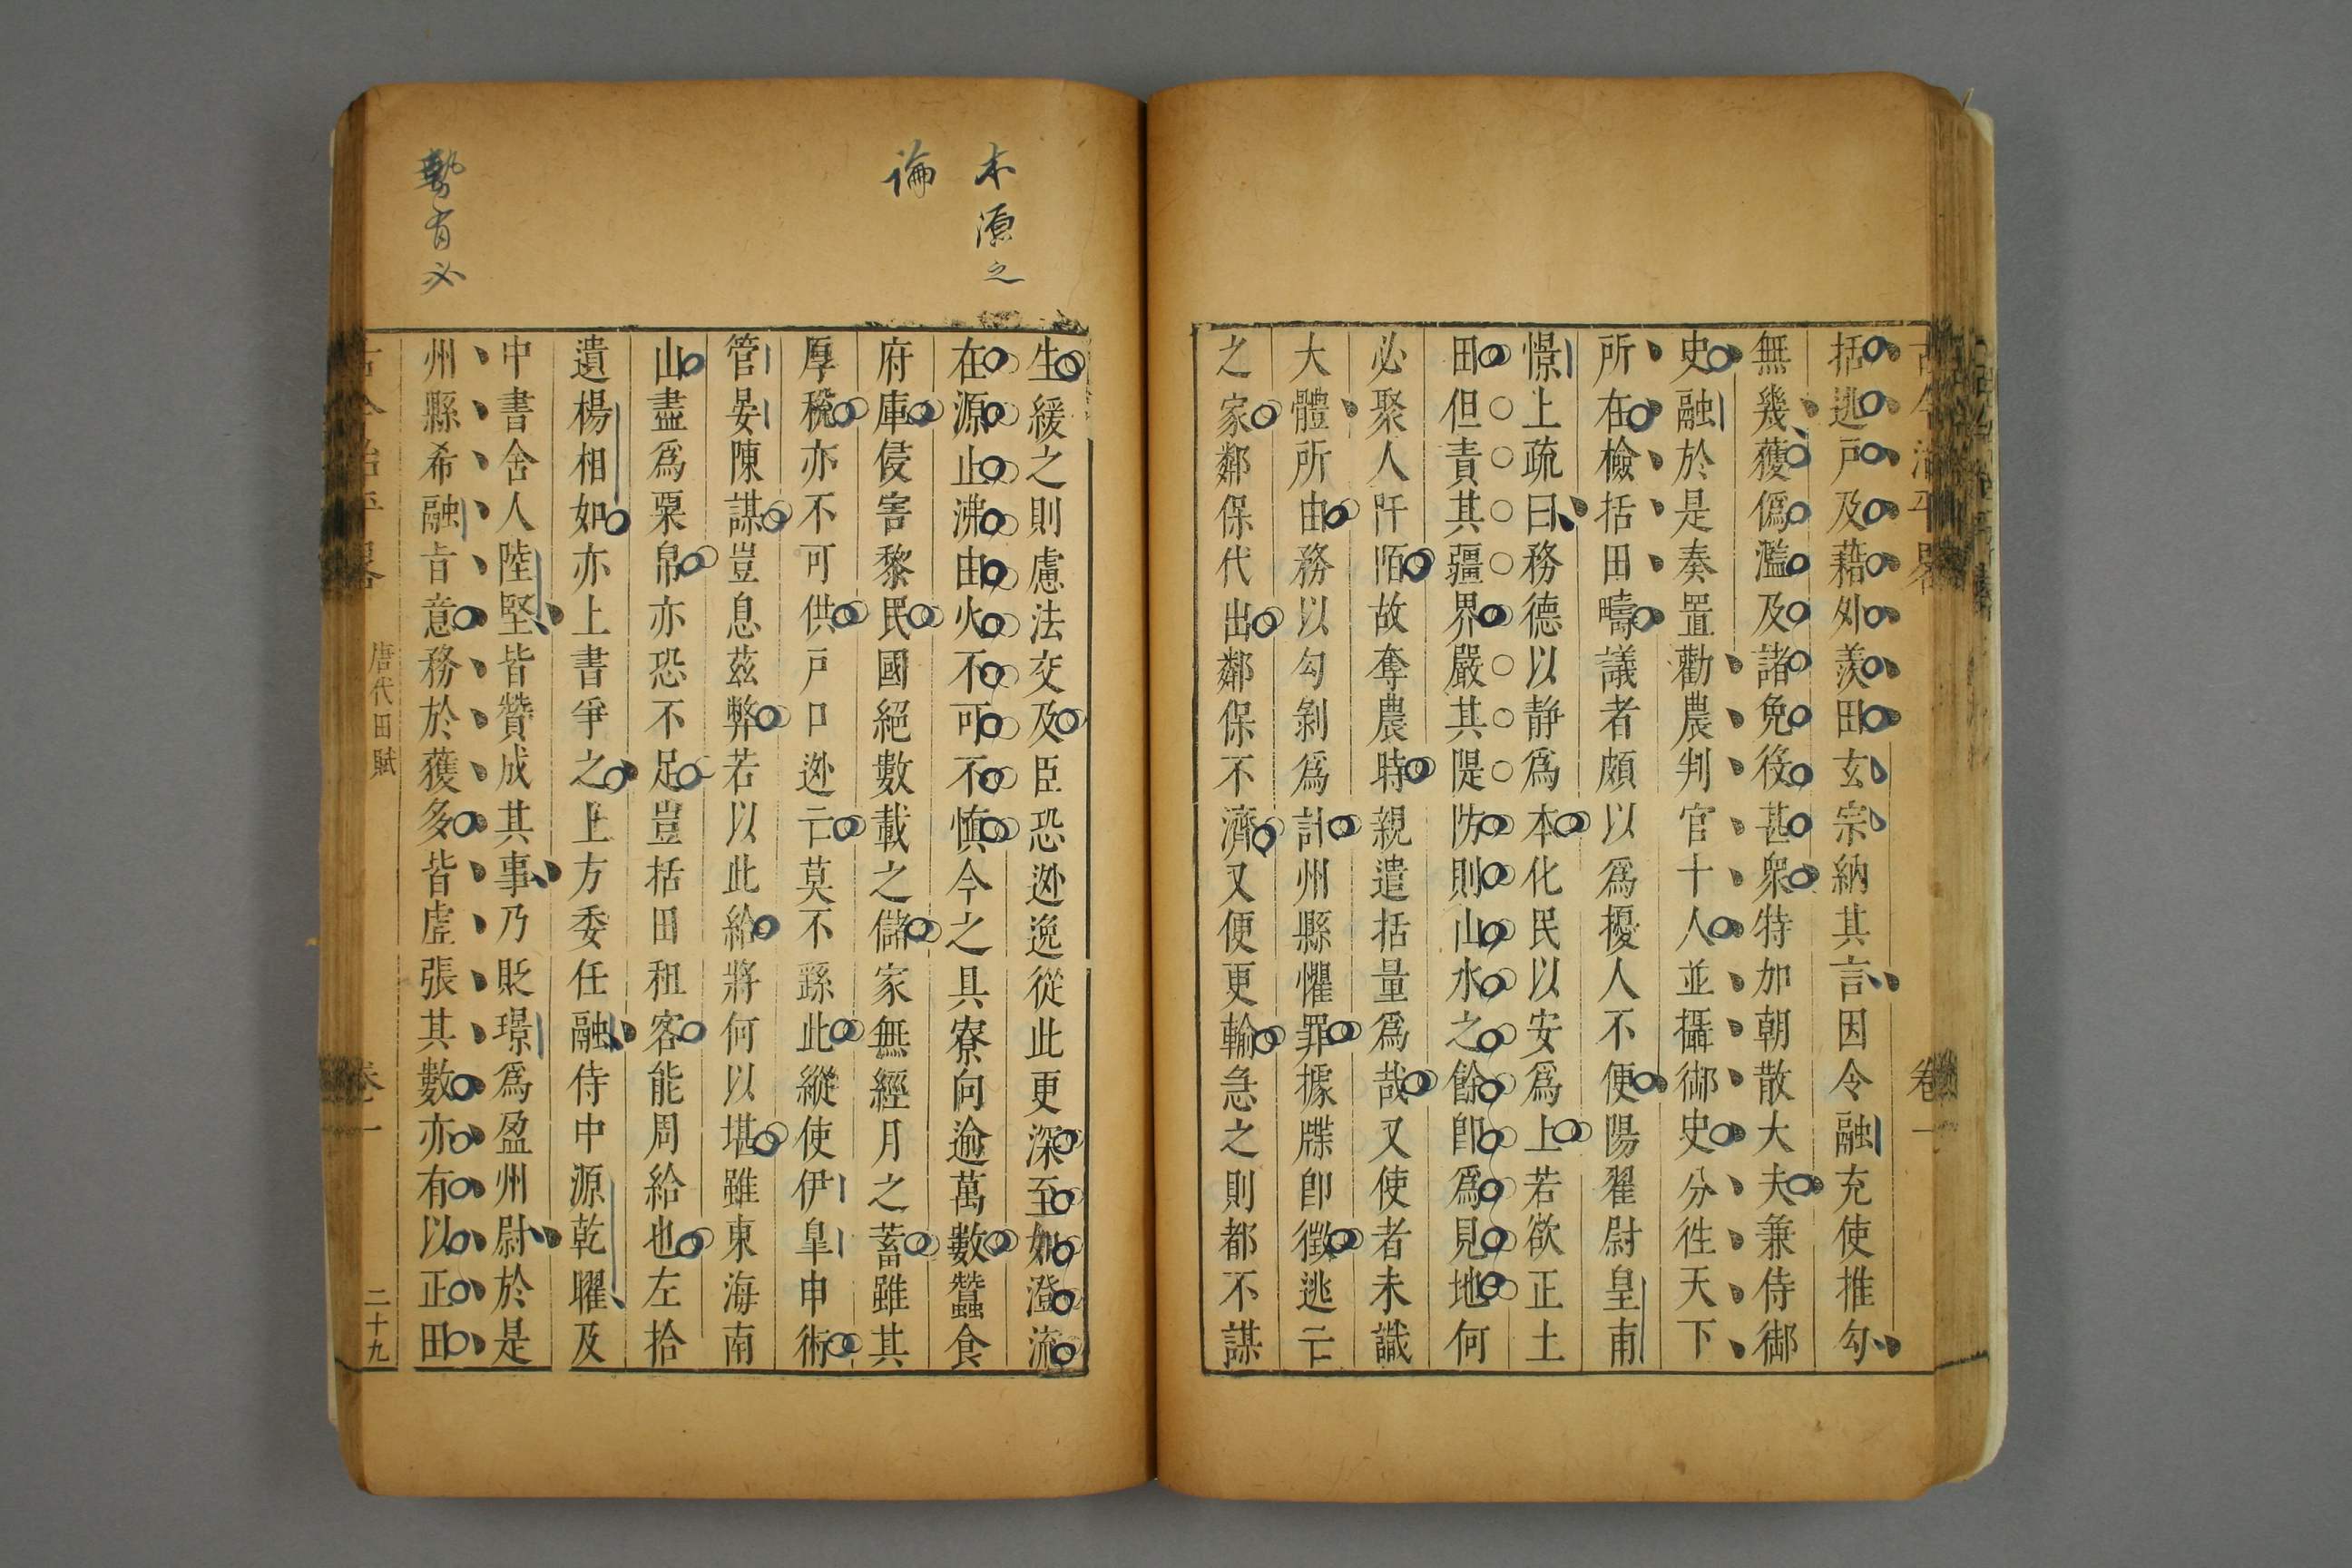 古今治平畧
卷一
括逃戸及藉外羨田玄宗納其言因令融充使推勾
無幾獲僞濫及諸免役甚衆特加朝散大夫兼侍御
史融於是奏置勸農判官十人並攝御史分徃天下
所在檢括田疇議者頗以爲擾人不便陽翟尉皇甫
憬上疏曰務德以静爲本化民以安爲上若欲正土
田但責其疆界嚴其隄防則山水之餘卽爲見地何
必聚人阡陌故奪農時親遣括量爲哉又使者未識
大體所由務以勾剝爲計州縣懼罪據牒卽徵逃亡
之家鄰保代出鄰保不濟又便更輸急之則都不謀
本源之
論
勢有必
生緩之則慮法交及臣恐逃逸從此更深至如澄流
在源止沸由火不可不慎今之具寮向逾萬數蠶食
府庫侵害黎民國絕數載之儲家無經月之蓄雖其
厚稅亦不可供戸口逃亡莫不繇此縱使伊臯申術
管晏陳謀豈息茲弊若以此給將何以堪雖東海南
山盡爲粟帛亦恐不足豈括田租客能周給也左拾
遺楊相如亦上書爭之上方委任融侍中源乾曜及
中書舍人陸堅皆贊成其事乃貶璟爲盈州尉於是
州縣希融旨意務於獲多皆虛張其數亦有以正田
古今治平畧
唐代田賦
卷一
二十九